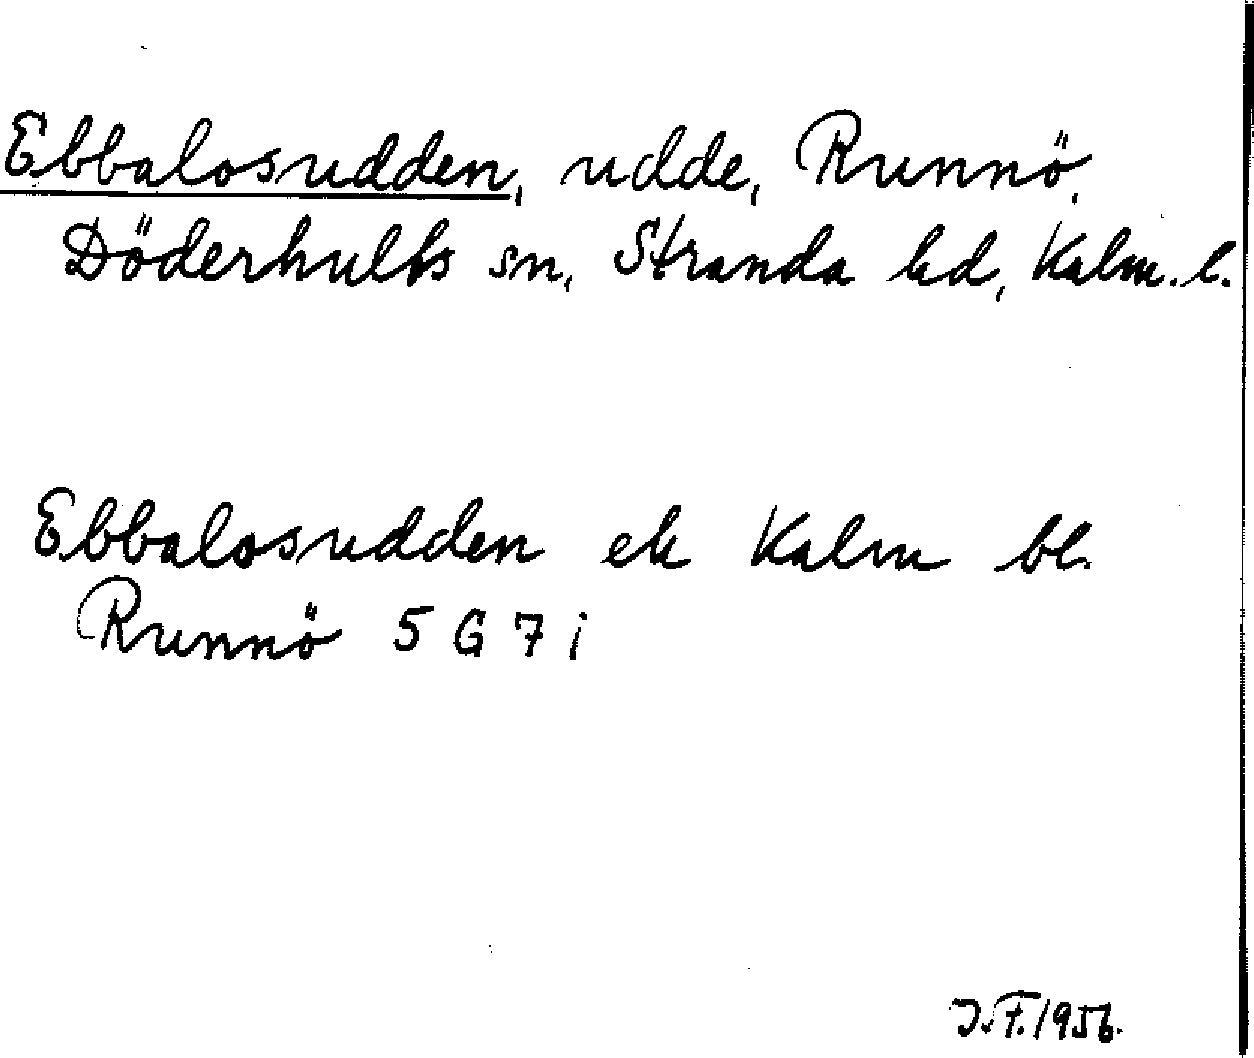 Ebbalosudden, udde, Runnö,
Döderhults sn, Stranda hd, Kalm. l.
Ebbalosudden ek Kalm bl.
Runnö 5 G 7 i
J.F. 1956.